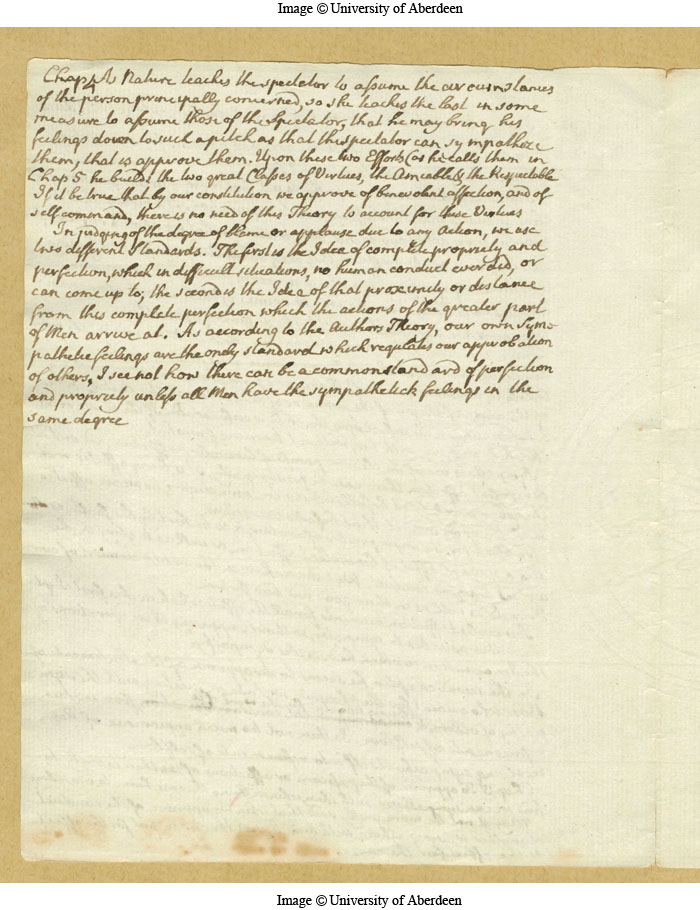 Image © University of Aberdeen
Chap 4 As Nature teaches the spectator to assume the circumstances
of the person principally concerned, so she teaches the last in some
measure to assume those of the Spectator, that he may bring his
feelings down to such a pitch as that the spectator can sympathize
them, that is approve them. Upon these two Efforts (as he calls them in
Chap 5 he builds the two great Classes of Virtues, the Amiable & the Respectable
If it be true that by our constitution we approve of benevolent affection, and of
self command, there is no need of this Theory to account for these Virtues
In judging of the degree of blame or applause due to any Action, we use
two different standards. The first is the Idea of complete propriety and
perfection, which in difficult situations, no human conduct ever did, or
can come up to; the second is the Idea of that proximity or distance
from this complete perfection which the actions of the greater part
of Men arrive at. As according to the Authors Theory, our own Sym-
pathetic feelings are the only standard which regulates our approbation
of others, I see not how there can be a common standard of perfection
and propriety unless all Men have the sympathetick feelings in the
same degree
Image © University of Aberdeen